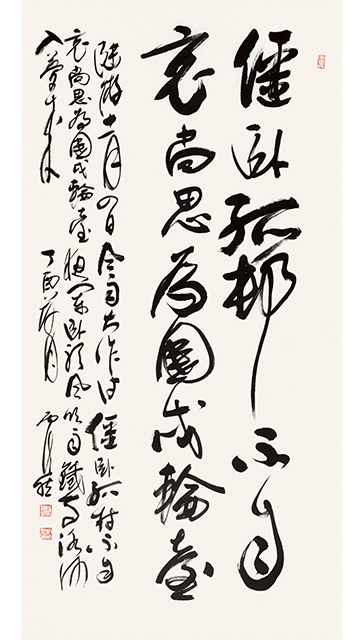 僵卧孤村不自
哀尚思為國戍輪臺
陸游十一月四日風雨大作詩 僵臥孤村不自
哀尚思為國戍輪臺夜闌臥聽風吹雨鐵馬冰河
入夢來 丁酉荷月